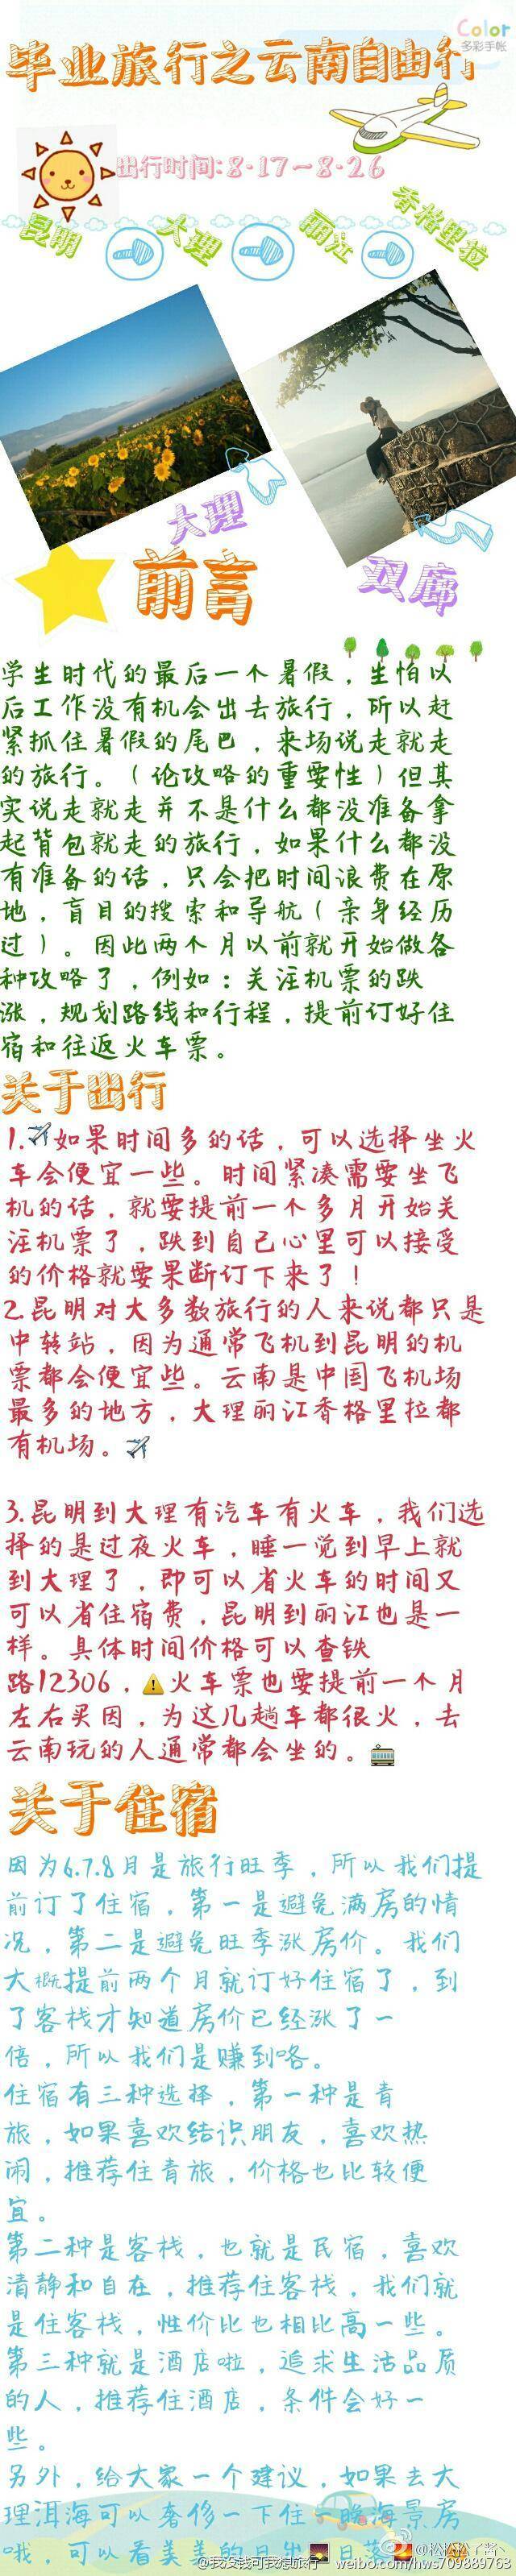 Color
多彩手帐
毕业旅行之云南自由行
出行时间:8·17-8·26
昆明
大理
丽江
香格里拉
大理
双廊
前言
学生时代的最后一个暑假，生怕以
后工作没有机会出去旅行，所以赶
紧抓住暑假的尾巴，来场说走就走
的旅行。（论攻略的重要性）但其
实说走就走并不是什么都没准备拿
起背包就走的旅行，如果什么都没
有准备的话，只会把时间浪费在原
地，盲目的搜索和导航（亲身经历
过）。因此两个月以前就开始做各
种攻略了，例如：关注机票的跌
涨，规划路线和行程，提前订好住
宿和往返火车票。
关于出行
1.✈如果时间多的话，可以选择坐火
车会便宜一些。时间紧凑需要坐飞
机的话，就要提前一个多月开始关
注机票了，跌到自己心里可以接受
的价格就要果断订下来了！
2.昆明对大多数旅行的人来说都只是
中转站，因为通常飞机到昆明的机
票都会便宜些。云南是中国飞机场
最多的地方，大理丽江香格里拉都
有机场。✈
3.昆明到大理有汽车有火车，我们选
择的是过夜火车，睡一觉到早上就
到大理了，即可以省火车的时间又
可以省住宿费，昆明到丽江也是一
样。具体时间价格可以查铁
路12306，⚠火车票也要提前一个月
左右买因，为这几趟车都很火，去
云南玩的人通常都会坐的。🚃
关于住宿
因为6.7.8月是旅行旺季，所以我们提
前订了住宿，第一是避免满房的情
况，第二是避免旺季涨房价。我们
大概提前两个月就订好住宿了，到
了客栈才知道房价已经涨了一
倍，所以我们是赚到咯。
住宿有三种选择，第一种是青
旅，如果喜欢结识朋友，喜欢热
闹，推荐住青旅，价格也比较便
宜。
第二种是客栈，也就是民宿，喜欢
清静和自在，推荐住客栈，我们就
是住客栈，性价比也相比高一些。
第三种就是酒店啦，追求生活品质
的人，推荐住酒店，条件会好一
些。
另外，给大家一个建议，如果去大
理洱海可以奢侈一下住一晚海景房
哦，可以看美美的日出🌅日落
@松松松丫酱
@我没钱可我想旅行
weibo.com/hws709889763